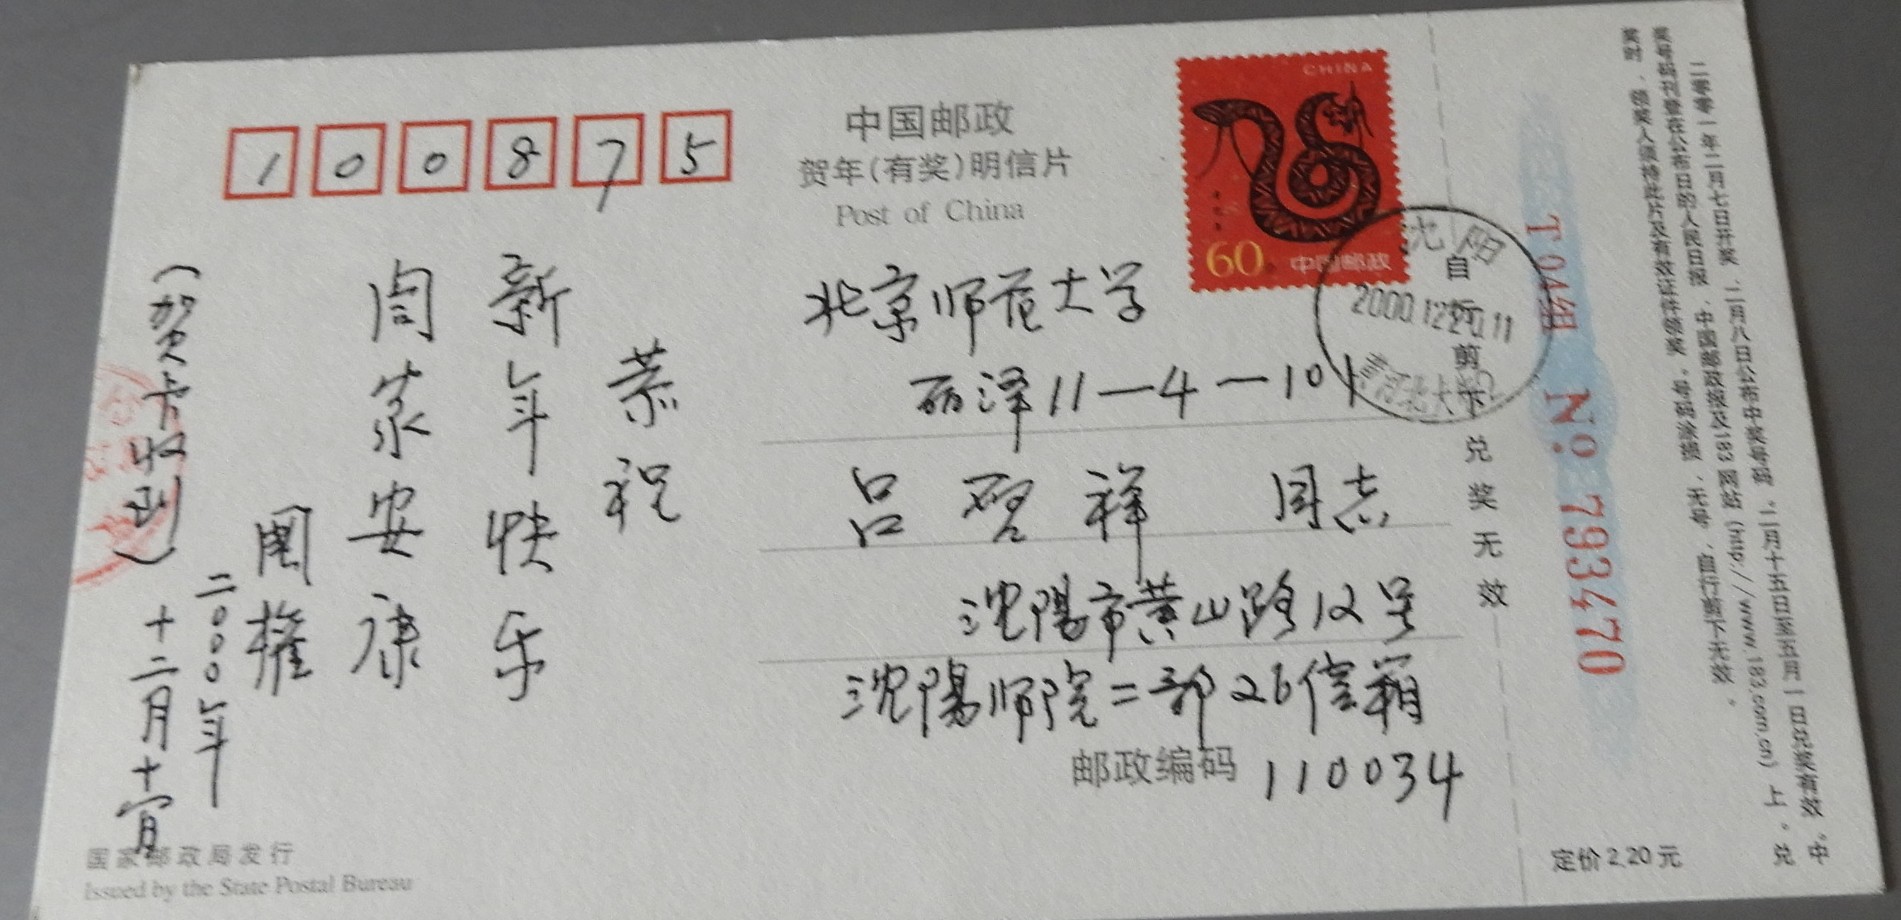 100875
中国邮政
贺年(有奖)明信片
Post of China
CHINA
60
中国邮政
沈阳
2000.12.20.11
北京师范大学
丽泽11-4-101
吕 启祥 同志
沈陽市黄山路12号
沈陽师院二部26信箱
邮政编码 110034
恭祝
新年快乐
阖家安康
二000年
十二月十六日
(贺卡收到)
国家邮政局发行
Issued by the State Postal Bureau
自行剪下兑奖无效
T04组 №: 793470
二零零一年二月七日开奖,二月八日公布中奖号码,二月十五日至五月一日兑奖有效。中
奖号码刊登在公布日的人民日报、中国邮政报及183网站(http://www.183.com.cn)上。兑
奖时,领奖人须持此片及有效证件领奖。号码涂损、无号、自行剪下无效。
定价2.20元